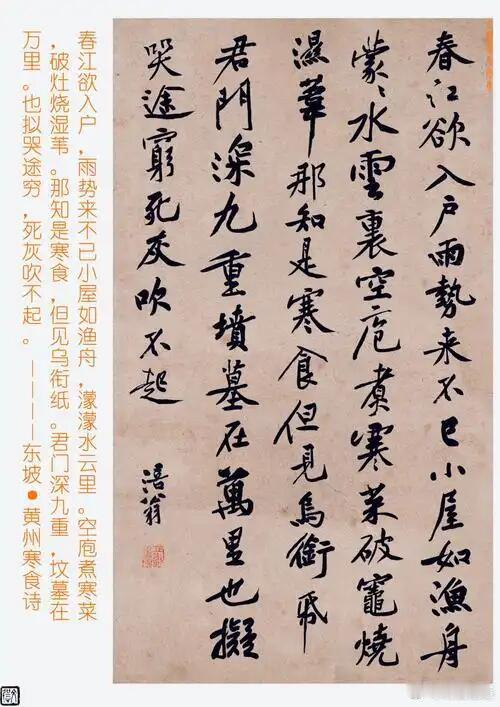 春江欲入戶雨勢来不已小屋如漁舟
蒙〻水雲裏空庖煮寒菜破竈燒
濕葦那知是寒食但見烏銜帋
君門深九重墳墓在萬里也擬
哭途窮死灰吹不起
涪翁
春江欲入户，雨势来不已小屋如渔舟，濛濛水云里。空庖煮寒菜
，破灶烧湿苇。那知是寒食，但见乌衔纸。君门深九重，坟墓在
万里。也拟哭途穷，死灰吹不起。————东坡●黄州寒食诗